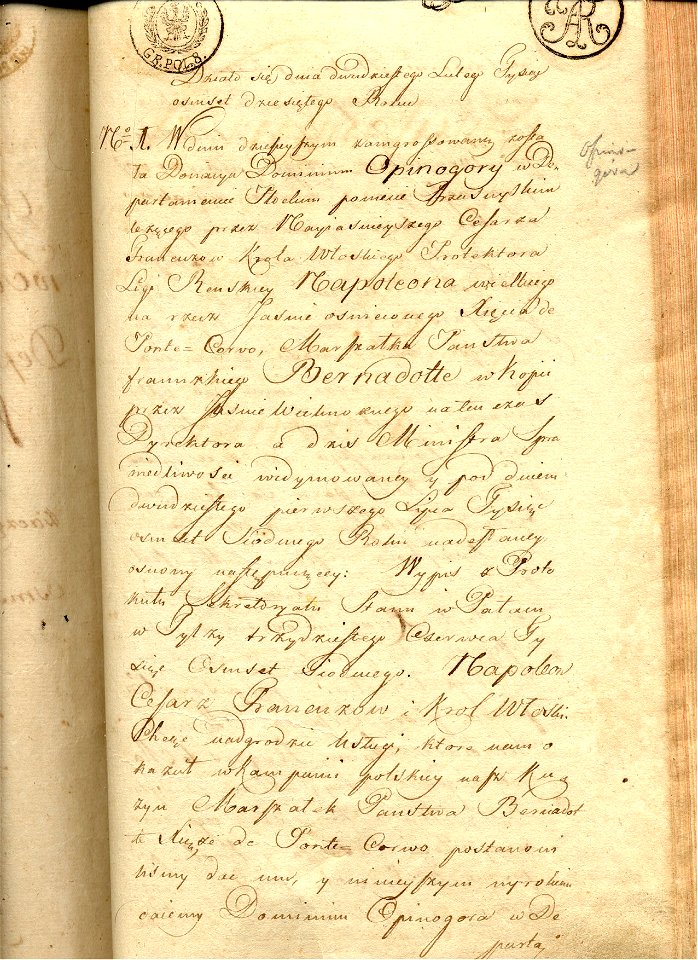 GR.POL.8.
AR
Działo się dnia dwudziestego Lutego Tysiąc
osmset dziesiątego Roku
No 1. W dniu dzisieyszym zaingrossowaną zosta
ła Donacya Dominium Opinogory w De-
Opino-
góra
partamencie Płockim powiecie Przasnyskim
leżącego przez Nayiaśnieyszego Cesarza
Francuzow Krola Włoskiego Protektora
Ligi Renskiey Napoleona wielkiego
na rzecz Jaśnie oświeconego Xięcia de
Ponte-Corvo, Marszałka Panstwa
francuzkiego Bernadotte w Kopii
przez Jaśnie Wielmożnego na ten czas
Dyrektora a dzis Ministra Spra
wiedliwości widymowaney y pod dniem
dwudziestego pierwszego Lipca Tysiąc
osmset siodmego Roku nadesłaney
osnowy następuiącey: Wypis z Proto
kułu Sekretaryatu Stanu w Pałacu
w Tylży trzydziestego Czerwca Ty
siąc Osmset siodmego. Napoleon
Cesarz Francuzow i Krol Włoski.
Chcąc nadgrodzić usługi, ktore nam o
kazał w kampanii polskiey nasz Ku
zyn Marszałek Panstwa Bernadot
te Xiąże de Ponte-Corvo postanowi
liśmy dać mu, y ninieyszym wyrokiem
daiemy Dominium Opinogora w De
parta